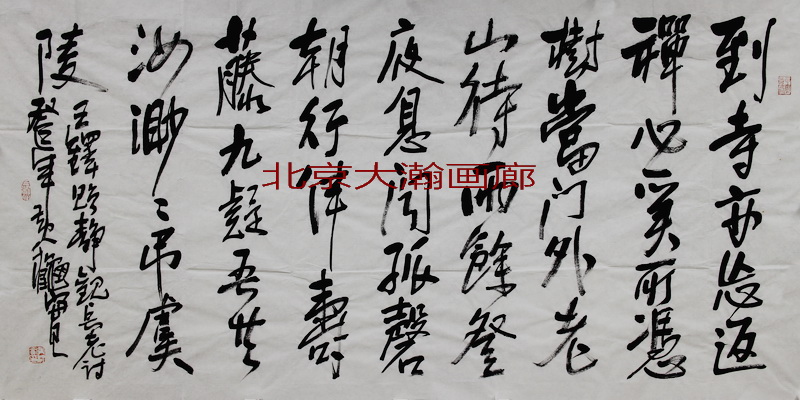 到寺亦忘返
禪心奚所憑
樹當門外老
山待雨餘登
夜息聞孤磬
朝行伴壽
藤九疑吾共
汝渺〻吊虞
陵
王鐸贈靜觀長老詩
北京大瀚画廊